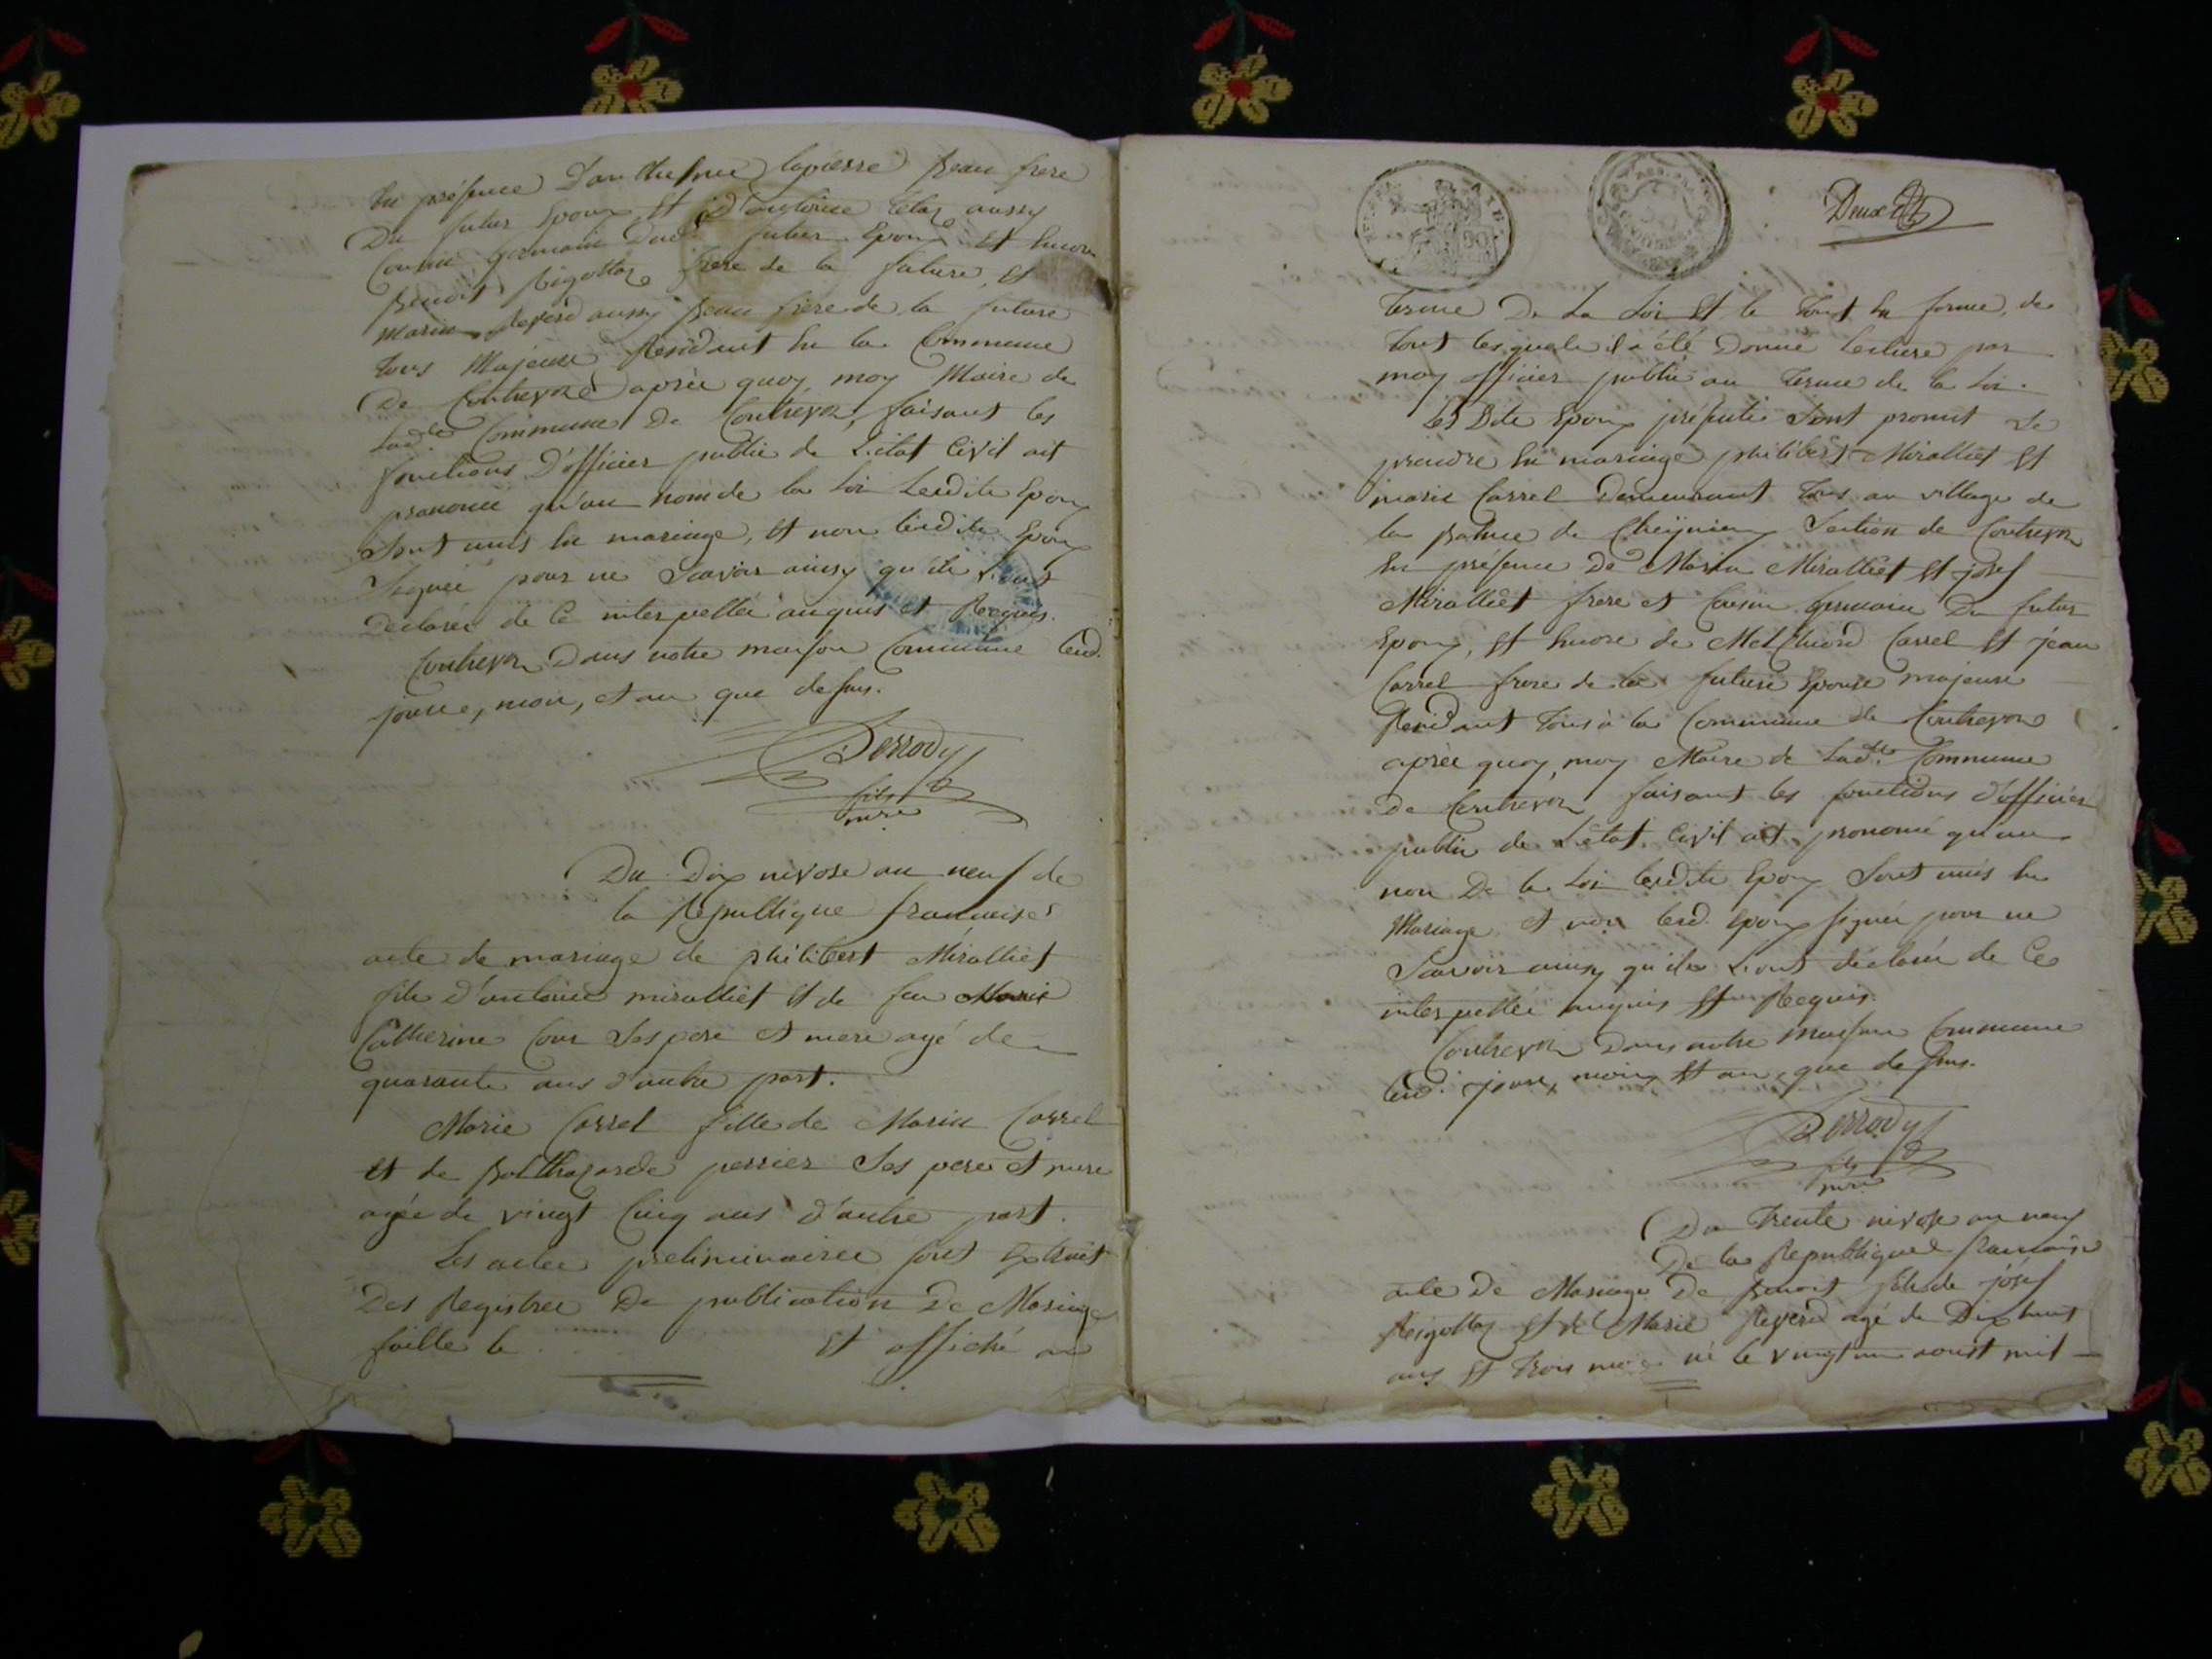 En présence D'anthelme lapierre Beau frere
Du futur Epoux Et d'antoine aussy
Cousin Germain Dud. futur Epoux Et Encore
Benoit Rigottaz frere de la future, Et
Marin Reverd aussy Beau frere de la future
tous Majeure Residant En la Commune
De Contrevoz après quoy, moy Maire de
Lad.te Commune De Contrevoz, faisant les
fonctions D'officier public de L'état Civil ait
prononcé qu'au nom de la Loi Lesdits Epoux
Sont unis En mariage, Et non lesdits Epoux
Signée pour ne Scavoir ainsy qu'ils L'ont
Déclarée de Ce interpellée anquis et Requis.
Contrevoz Dans notre maison Commune led.
jours, mois, et an que dessus.
Perrody
fils
mre
Du Dix nivose an neuf de
la Republique francaise
acte de mariage de philibert Miralliet
fils d'antoine miralliet Et de feu Marie
Catherine Cour Ses pere et mere agé de
quarante ans d'autre part.
Marie Carrel fille de Marin Carrel
Et de Balthazarde perrier Ses pere et mere
agée de vingt Cinq ans d'autre part.
Les actes preliminaires sont Extrait
Des Registres De publication De Mariage
faitte le Et affiché au
Deux
terme De La Loi Et le tout En forme, de
tout lesquels il a été Donné lecture par
moy officier public au terme de la Loi.
Les Dits Epoux présents Sont promit de
prendre En mariage philibert Miralliet Et
marie Carrel Demeurant tous au village de
la Balme de Cheignieu Section de Contrevoz
En présence De Marin Miralliet Et josef
Miralliet frere et Cousin germain Du futur
Epoux, Et Encore de Melchiord Carrel Et jean
Carrel frere de la future Epouse majeure
Residant tous à la Commune de Contrevoz
après quoy, moy Maire de Lad.te Commune
De Contrevoz faisant les fonctions d'officier
public de L'état Civil ait prononcé qu'au
non De la Loi lesdits Epoux Sont unis En
Mariage Et non lesd. Epoux signée pour ne
Scavoir ainsy qu'ils L'ont déclarée de Ce
interpellée anquis Et Requis.
Contrevoz Dans notre Maison Commune
lesd. jours, mois Et an que dessus.
Perrody
fils
mre
Du Trente nivose an neuf
De la Republique francaise
acte De Mariage De Benoit fils de josef
Reigottaz Et de Marie Reverd agé de Dix huit
ans Et trois mois né le vingt un aoust mil